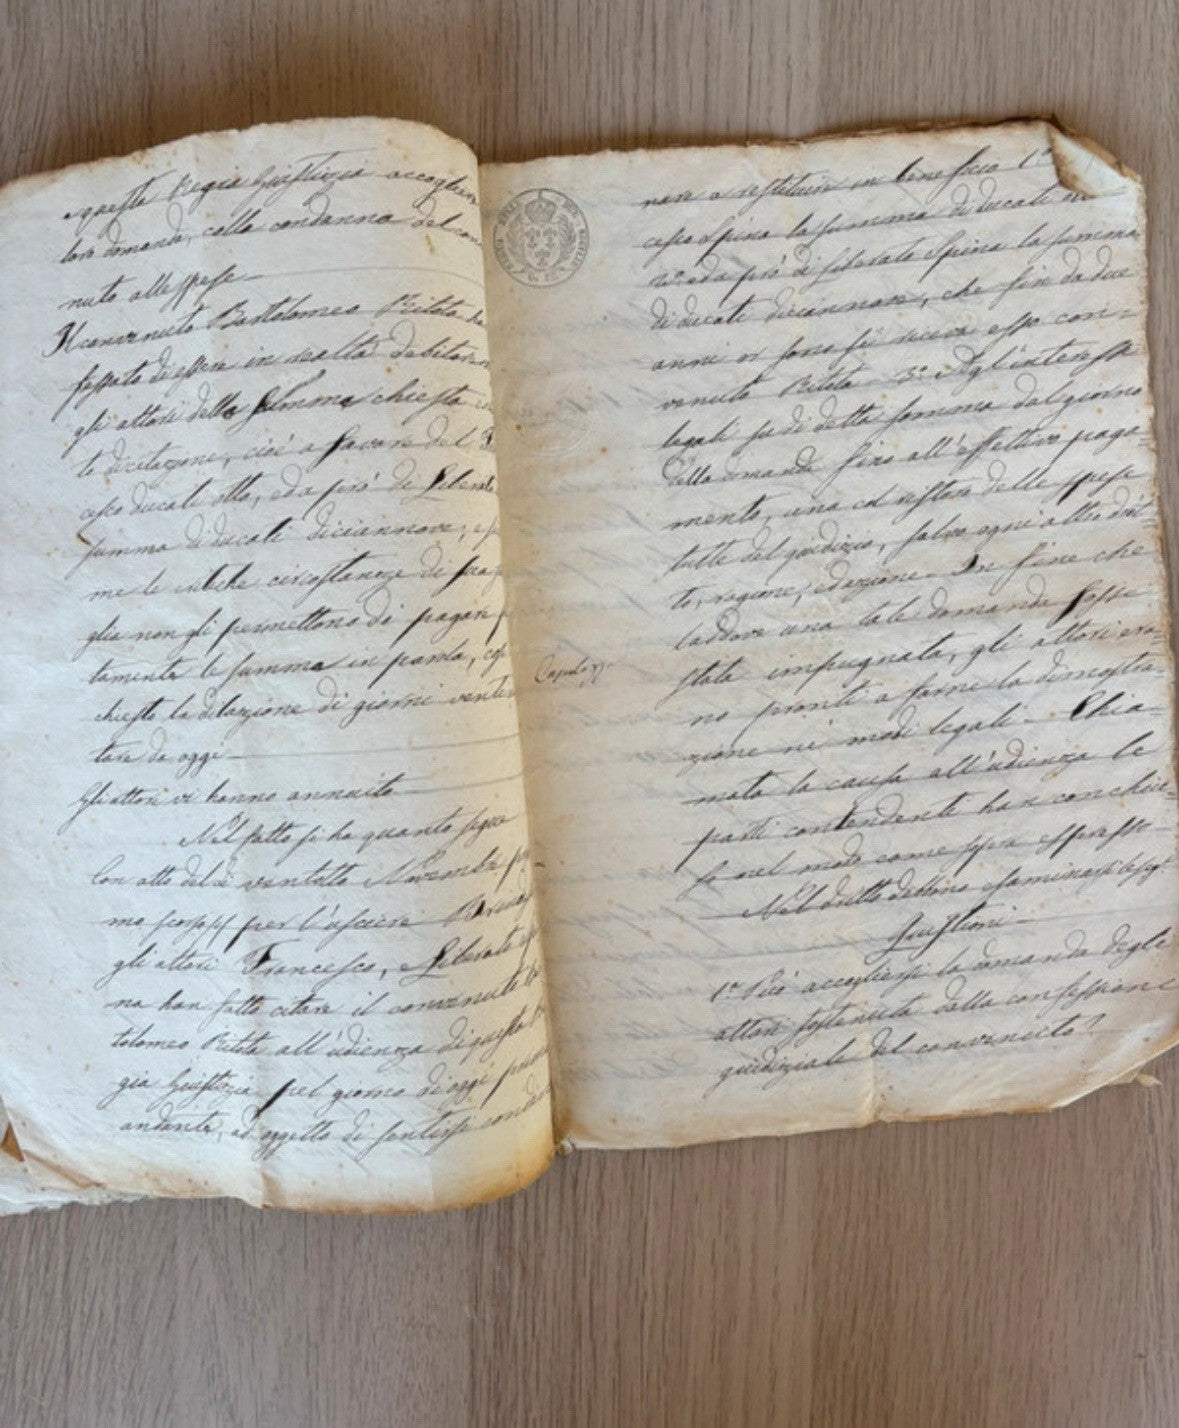 questa Regia Giustizia accoglier
loro domanda, colla condanna del con
nuto alle spese
Il convenuto Bartolomeo Pitota ha
fessato di essere in realtà debitore
gli attori della somma chiesta
te dicitazione, cioè a favore del
cesco ducati otto, ed a prò di Libera
somma di ducati diciannove;
me le critiche circostanze di
glia non gli permettono di pagare
tamente le somma in parola,
chiesto la dilazione di giorni venti
tare da oggi
Gli attori vi hanno annuito
Nel fatto si ha quanto segue
Con atto del dì ventotto Novembre
mo scorso per l'usciere
gli attori Francesco, e Liberato
na han fatto citare il convenuto
tolomeo Pitota all'udienza di questa
gia Giustizia pel giorno di oggi
andante, ad oggetto di sentirsi condan
nare a restituire in beneficio 1º
cesco Spina la somma di ducati
2º ed a prò di Liberato Spina la somma
di ducati diciannove, che fin da due
anni or sono si ebbe esso con=
venuto Pitota 3º Agl'interessi
legali su di detta somma dal giorno
della dimanda fino all'effettivo paga=
mento, una col ristoro delle spese
tutte del giudizio, salvo ogni altro drit=
to, ragione, ed azione. In fine che
laddove una tale domanda fosse
stata impugnata, gli attori era=
no pronti a farne la dimostra=
zione nei modi legali. Chia=
mata la causa all'udienza le
parti contendenti han conchiu=
so nel modo come sopra espresso
Nel dritto debbono esaminarsi le seg.
Quistioni
1º Può accogliersi la domanda degli
attori sostenuta dalla confessione
giudiziale del convenuto?